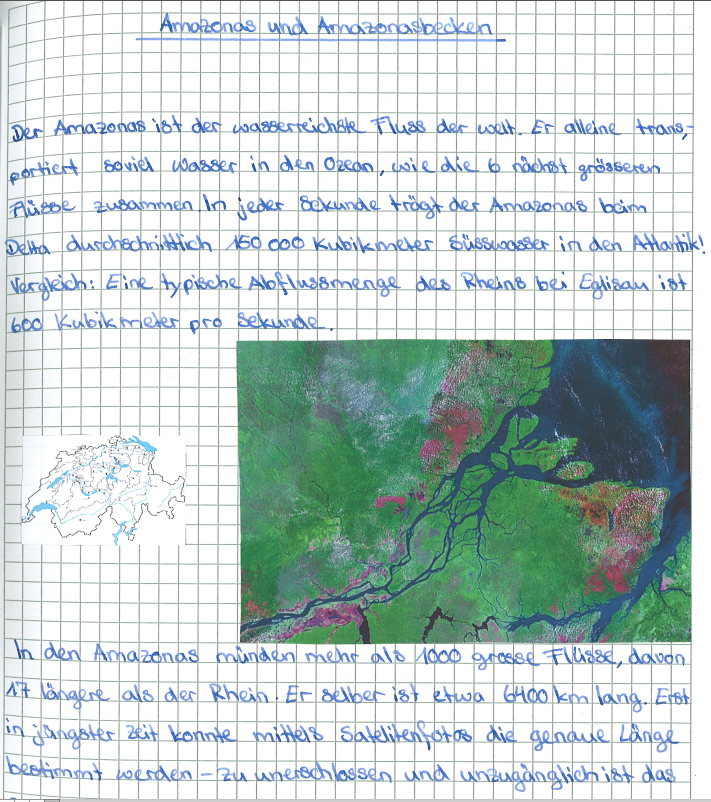 Amazonas und Amazonasbecken
Der Amazonas ist der wasserreichste Fluss der welt. Er alleine trans-
portiert soviel Wasser in den Ozean, wie die 6 nächst grösseren
Flüsse zusammen. In jeder Sekunde trägt der Amazonas beim
Delta durchschnittlich 150 000 Kubikmeter Süsswasser in den Atlantik!
Vergleich: Eine typische Abflussmenge des Rheins bei Eglisau ist
600 Kubikmeter pro Sekunde.
In den Amazonas münden mehr als 1000 grosse Flüsse, davon
17 längere als der Rhein. Er selber ist etwa 6400 km lang. Erst
in jüngster zeit konnte mittels Satelitenfotos die genaue Länge
bestimmt werden – zu unerschlossen und unzugänglich ist das